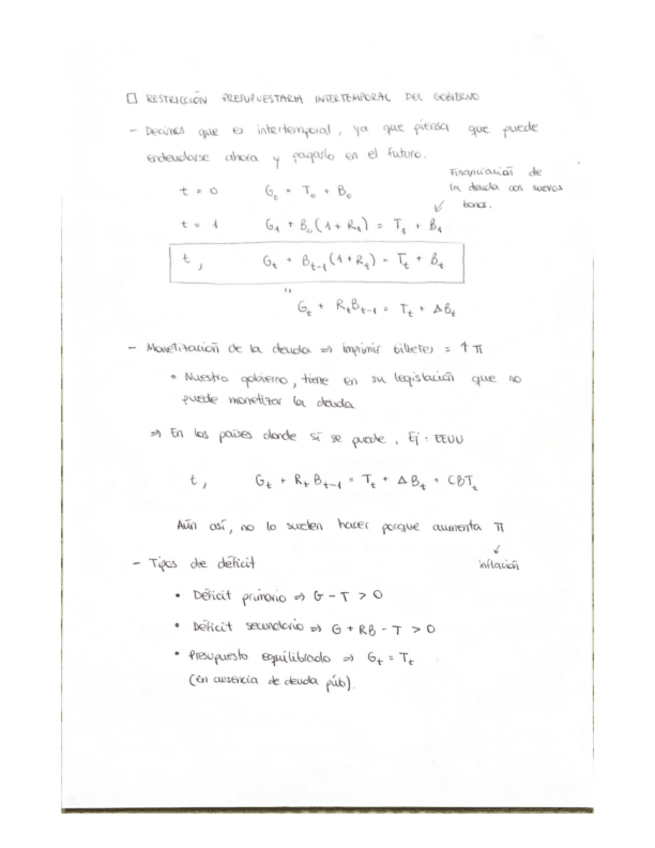 □ RESTRICCIÓN PRESUPUESTARIA INTERTEMPORAL DEL GOBIERNO
- Decimos que es intertemporal, ya que piensa que puede
endeudarse ahora y pagarlo en el futuro.
Financiación de
la deuda con nuevos
bonos.
t = 0 G₀ = T₀ + B₀
t = 1 G₁ + B₀(1+R₁) = T₁ + B₁
t, Gₜ + Bₜ₋₁(1+Rₜ) = Tₜ + Bₜ
"
Gₜ + RₜBₜ₋₁ = Tₜ + ΔBₜ
- Monetización de la deuda ⇒ imprimir billetes = ↑ π
• Nuestro gobierno, tiene en su legislación que no
puede monetizar la deuda
⇒ En los países donde sí se puede, Ej: EEUU
t, Gₜ + RₜBₜ₋₁ = Tₜ + ΔBₜ + CBTₜ
Aún así, no lo suelen hacer porque aumenta π
↙
inflación
- Tipos de déficit
• Déficit primario ⇒ G - T > 0
• Déficit secundario ⇒ G + RB - T > 0
• Presupuesto equilibrado ⇒ Gₜ = Tₜ
(en ausencia de deuda púb).